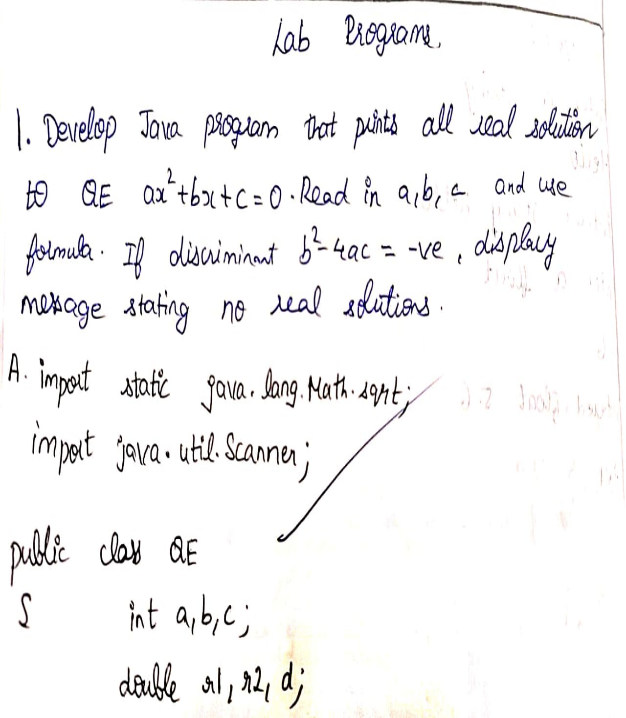 Lab Programs.
1. Develop Java program that prints all real solution
to QE ax²+bx+c=0. Read in a,b,c and use
formula. If discriminant b²-4ac = -ve, display
message stating no real solutions.
A. import static java.lang.Math.sqrt;
import java.util.Scanner;
public class QE
{ int a,b,c;
double r1, r2, d;